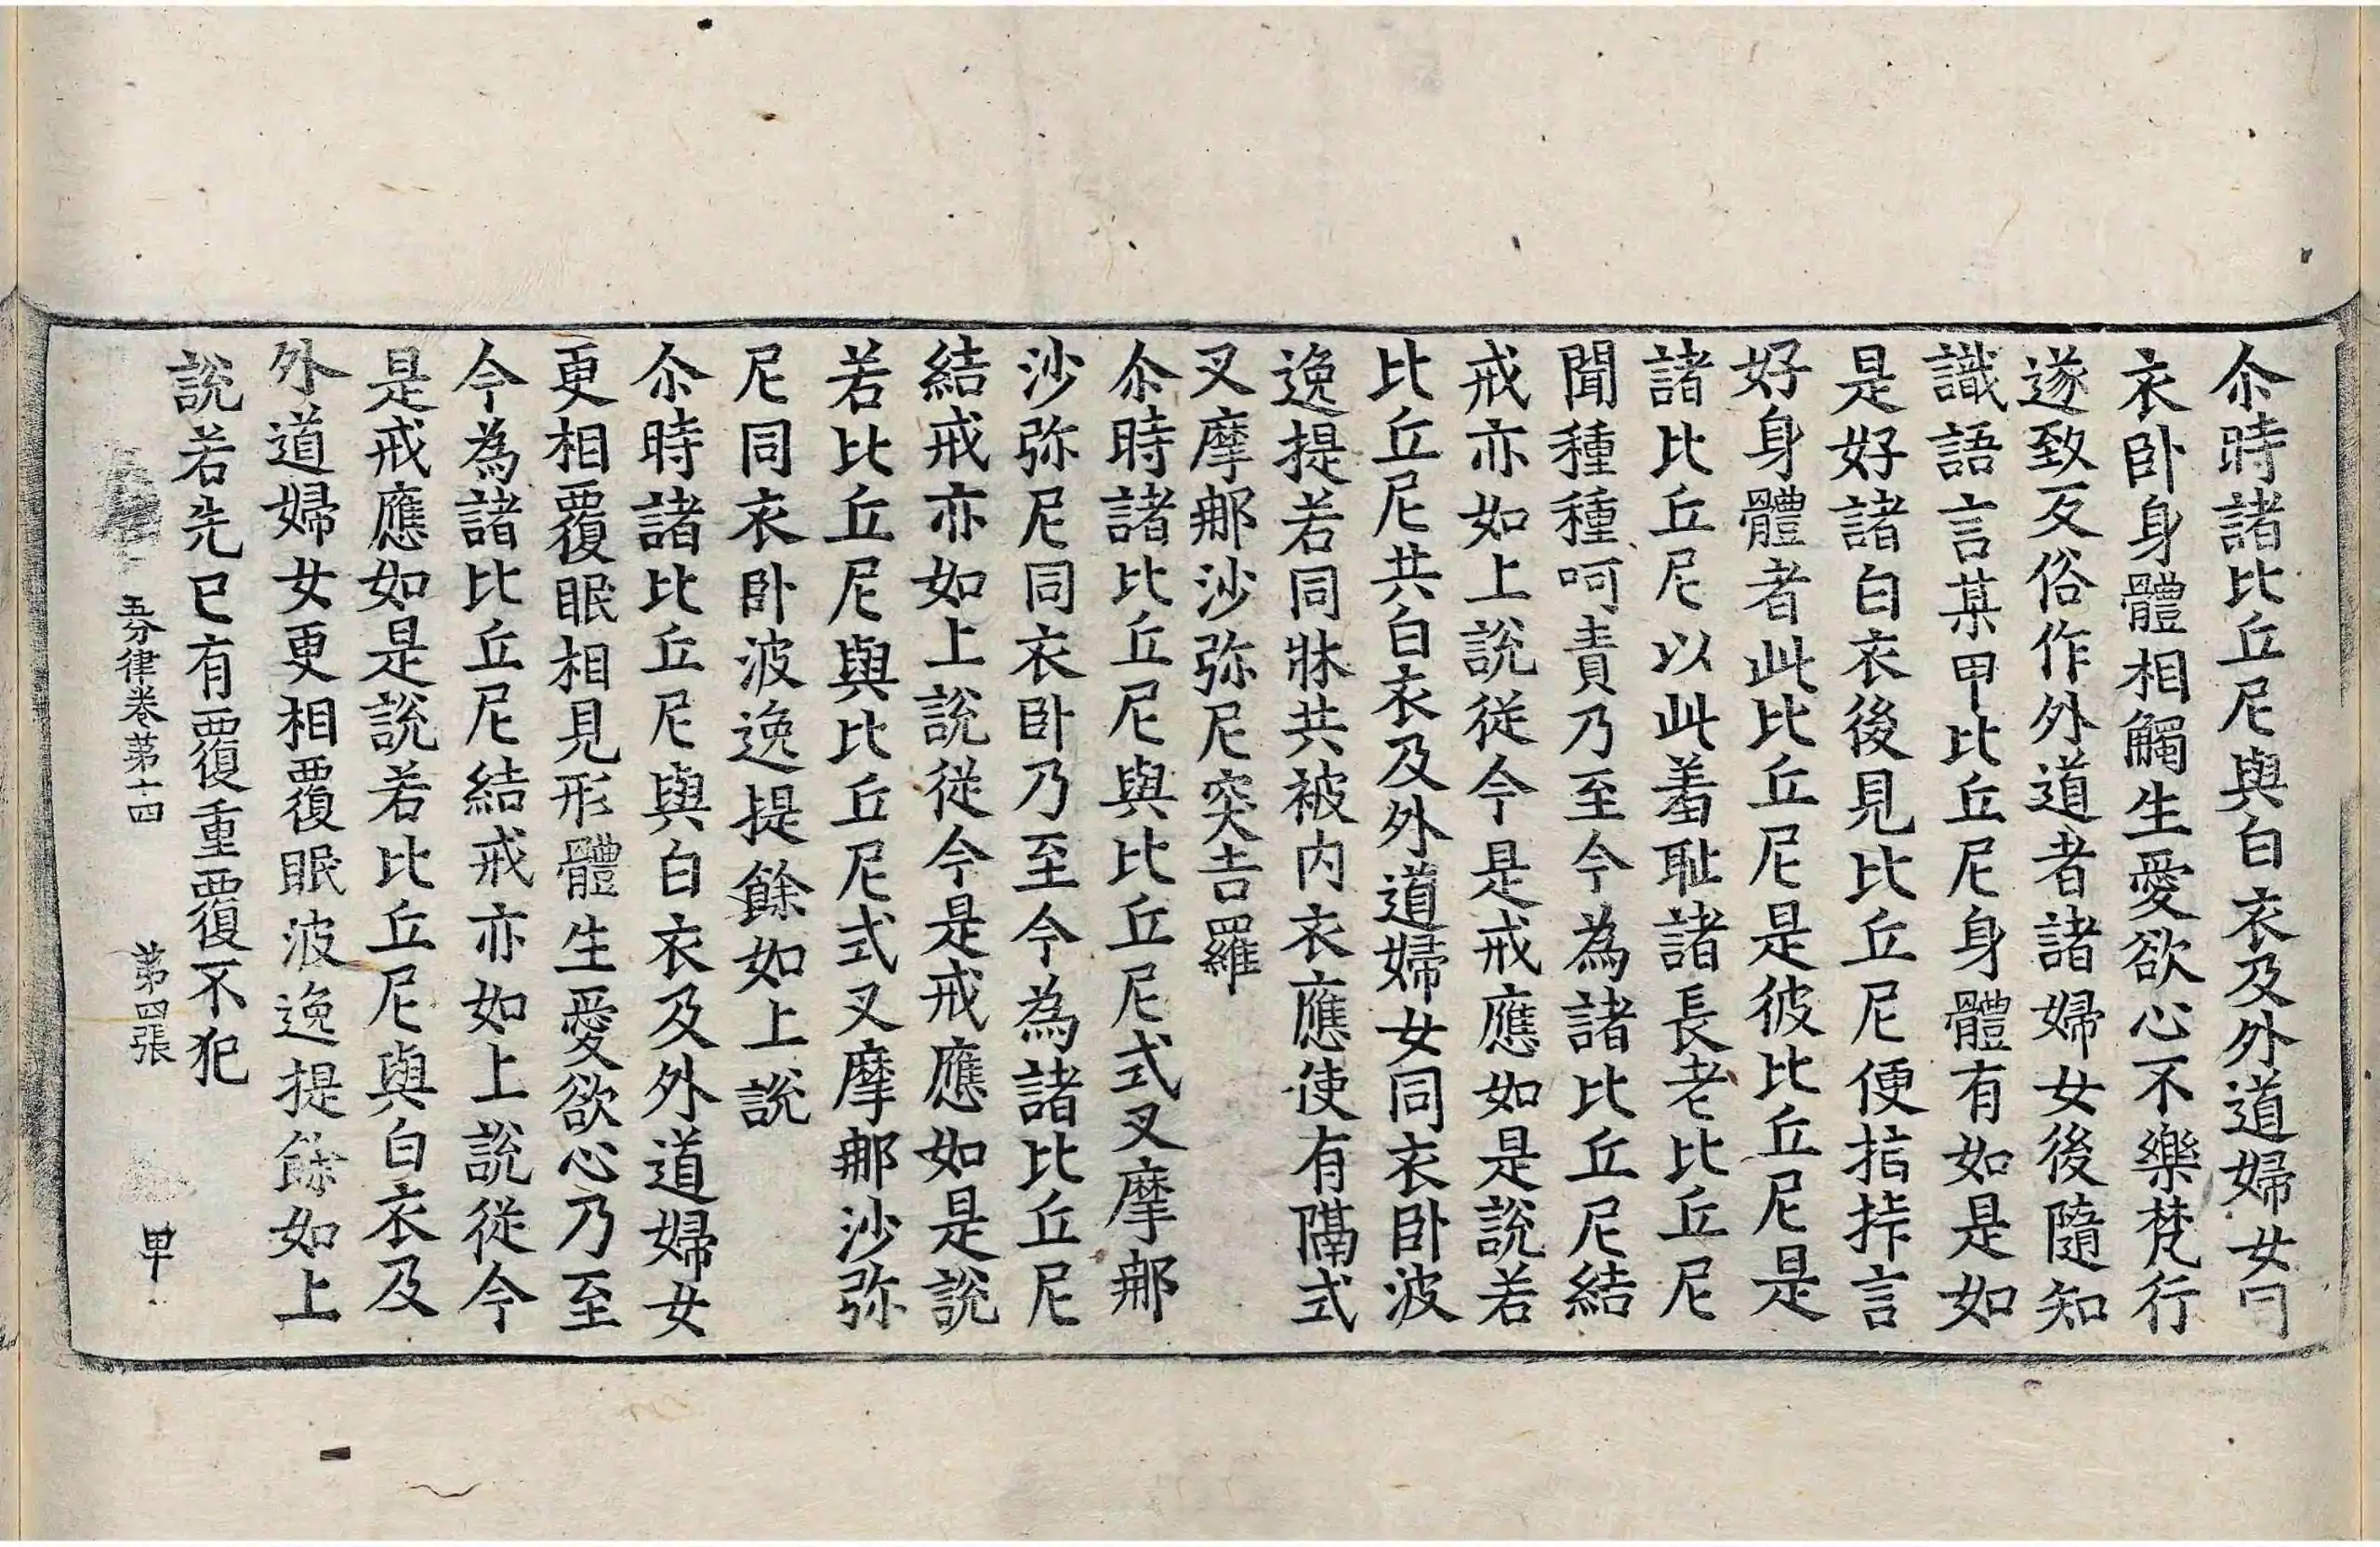 尒時諸比丘尼與白衣及外道婦女同
衣卧身體相觸生愛欲心不樂梵行
遂致反俗作外道者諸婦女後隨知
識語言某甲比丘尼身體有如是如
是好諸白衣後見比丘尼便指㧗言
好身體者此比丘尼是彼比丘尼是
諸比丘尼以此羞耻諸長老比丘尼
聞種種呵責乃至今為諸比丘尼結
戒亦如上說從今是戒應如是說若
比丘尼共白衣及外道婦女同衣卧波
逸提若同牀共被内衣應使有隔式
叉摩那沙弥尼突吉羅
尒時諸比丘尼與比丘尼式叉摩那
沙弥尼同衣卧乃至今為諸比丘尼
結戒亦如上說從今是戒應如是說
若比丘尼與比丘尼式叉摩那沙弥
尼同衣卧波逸提餘如上說
尒時諸比丘尼與白衣及外道婦女
更相覆眠相見形體生愛欲心乃至
今為諸比丘尼結戒亦如上說從今
是戒應如是說若比丘尼與白衣及
外道婦女更相覆眠波逸提餘如上
說若先已有覆重覆不犯
五分律卷第十四 第四張 甲